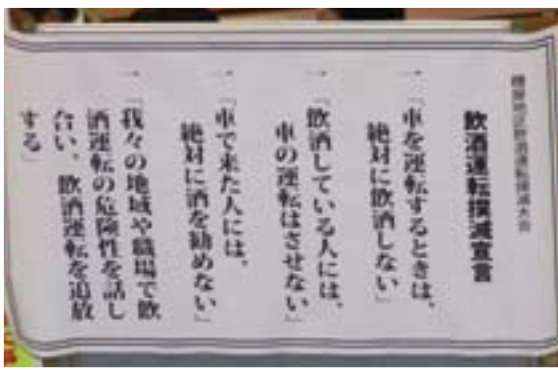 地区飲酒運転撲滅大会
飲酒運転撲滅宣言
一「車を運転するときは、
絶対に飲酒しない」
一「飲酒している人には、
車の運転はさせない」
一「車で来た人には、
絶対に酒を勧めない」
一「我々の地域や職場で飲
酒運転の危険性を話し
合い、飲酒運転を追放
する」